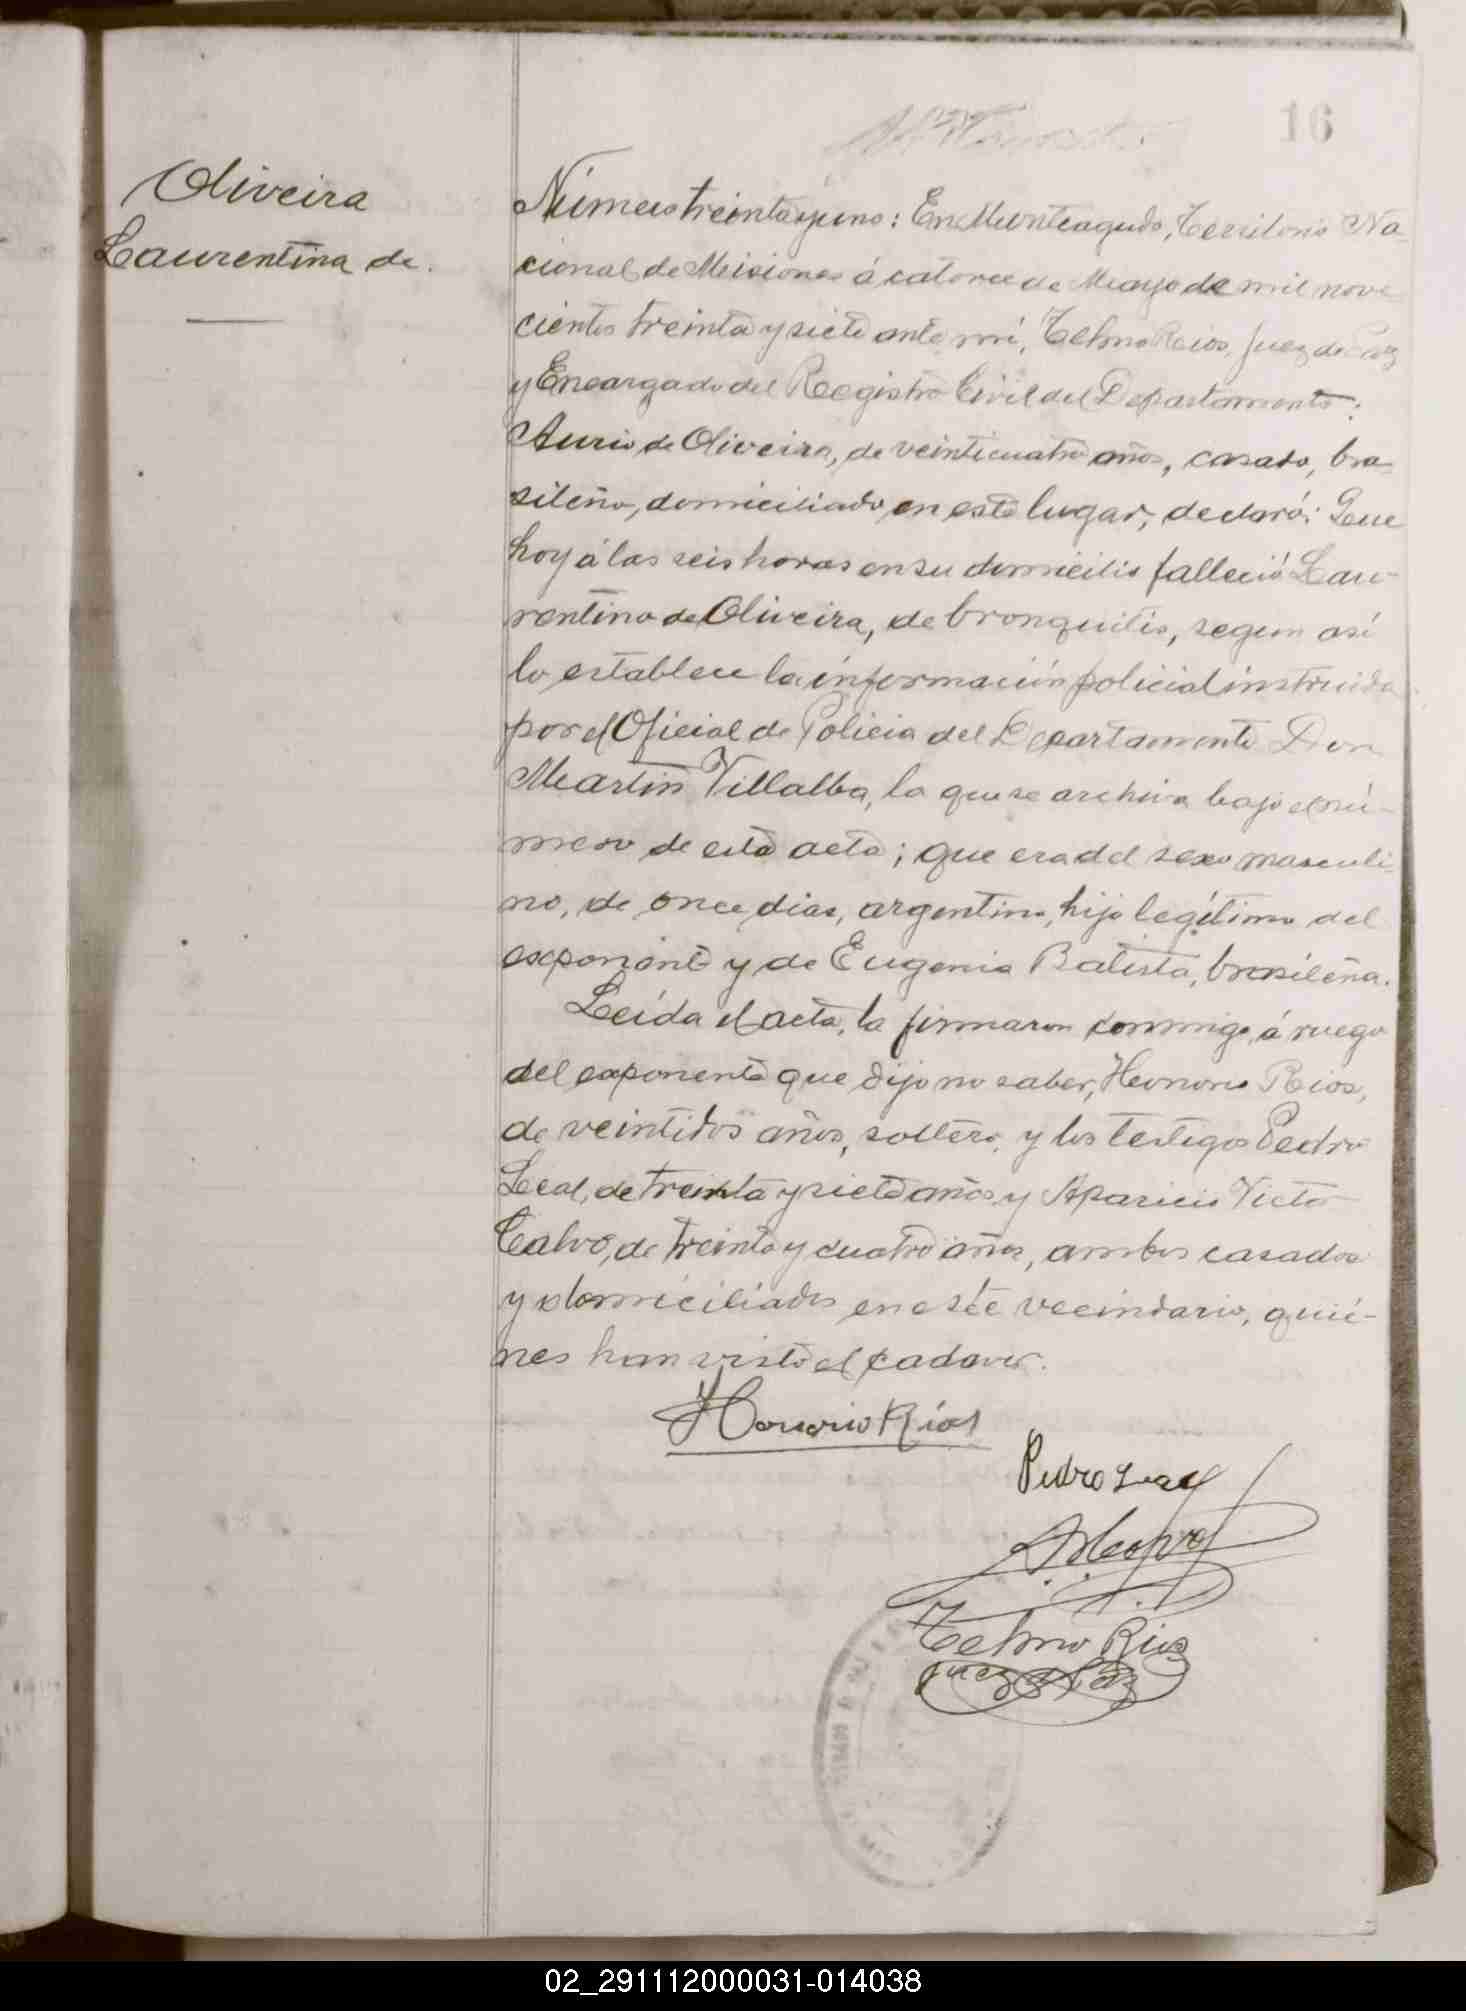 16
Oliveira
Laurentina de.
Número treinta y uno: En Monteagudo, Territorio Na-
cional de Misiones á catorce de Mayo de mil nove-
cientos treinta y siete ante mí, Telmo Rios, Juez de Paz
y Encargado del Registro Civil del Departamento:
Aurio de Oliveira, de veinticuatro años, casado, bra-
sileño, domiciliado en este lugar, declaró: Que
hoy á las seis horas en su domicilio falleció Lau-
rentino de Oliveira, de bronquitis, segun asi
lo establece la información policial instruida
por el Oficial de Policia del Departamento Don
Martin Villalba, la que se archiva bajo el nú-
mero de esta acta; que era del sexo masculi-
no, de once dias, argentino, hijo legítimo del
exponente y de Eugenia Batista, brasileña.
Leída el acta, la firmaron conmigo, á ruego
del exponente que dijo no saber, Honorio Rios,
de veintidos años, soltero, y los testigos Pedro
Leal, de treinta y siete años y Aparicio Victor
Calvo, de treinta y cuatro años, ambos casados
y domiciliados en este vecindario, quié-
nes han visto el cadaver.
Honorio Ríos
Pedro Leal
Telmo Rios
Juez de Paz
02_291112000031-014038